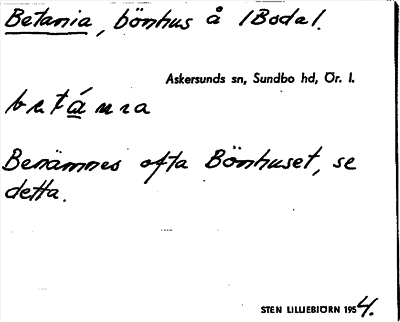 Betania, bönhus å /Boda/.
Askersunds sn, Sundbo hd, Ör. l.
Benämnes ofta Bönhuset, se
detta.
STEN LILLIEBJÖRN 1954.